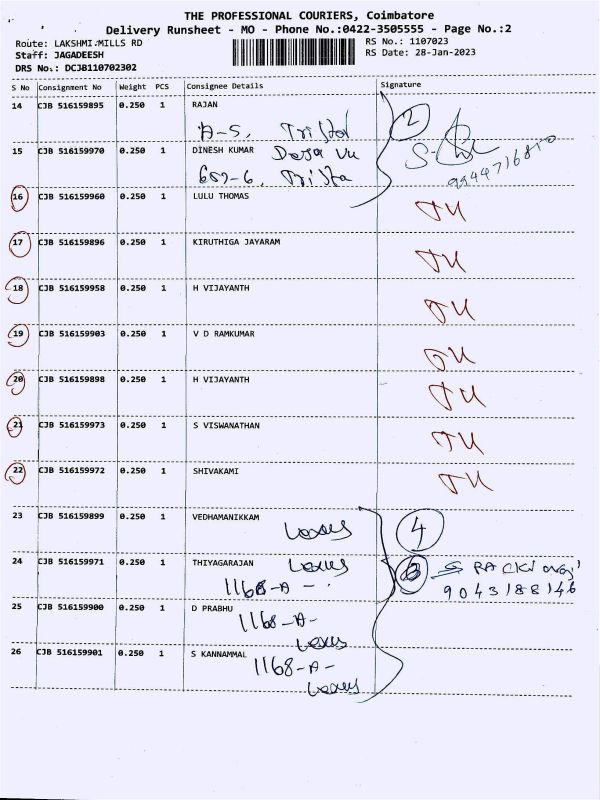 THE PROFESSIONAL COURIERS, Coimbatore
Delivery Runsheet - MO - Phone No.:0422-3505555 - Page No.:2
Route: LAKSHMI MILLS RD
RS No.: 1107023
Staff: JAGADEESH
RS Date: 28-Jan-2023
DRS No.: DCJB110702302
S No Consignment No Weight PCS Consignee Details Signature
14 CJB 516159895 0.250 1 RAJAN 2
A-5, Tristal
15 CJB 516159970 0.250 1 DINESH KUMAR Deja Vu
9944716810
602-6, Trista
16 CJB 516159960 0.250 1 LULU THOMAS TU
17 CJB 516159896 0.250 1 KIRUTHIGA JAYARAM TU
18 CJB 516159958 0.250 1 H VIJAYANTH TU
19 CJB 516159903 0.250 1 V D RAMKUMAR TU
20 CJB 516159898 0.250 1 H VIJAYANTH TU
21 CJB 516159973 0.250 1 S VISWANATHAN TU
22 CJB 516159972 0.250 1 SHIVAKAMI TU
23 CJB 516159899 0.250 1 VEDHAMANIKKAM 4
Lexus
24 CJB 516159971 0.250 1 THIYAGARAJAN Lexus
1168-A -
9043188146
25 CJB 516159900 0.250 1 D PRABHU
1168-A-
Lexus
26 CJB 516159901 0.250 1 S KANNAMMAL
1168-A-
Lexus